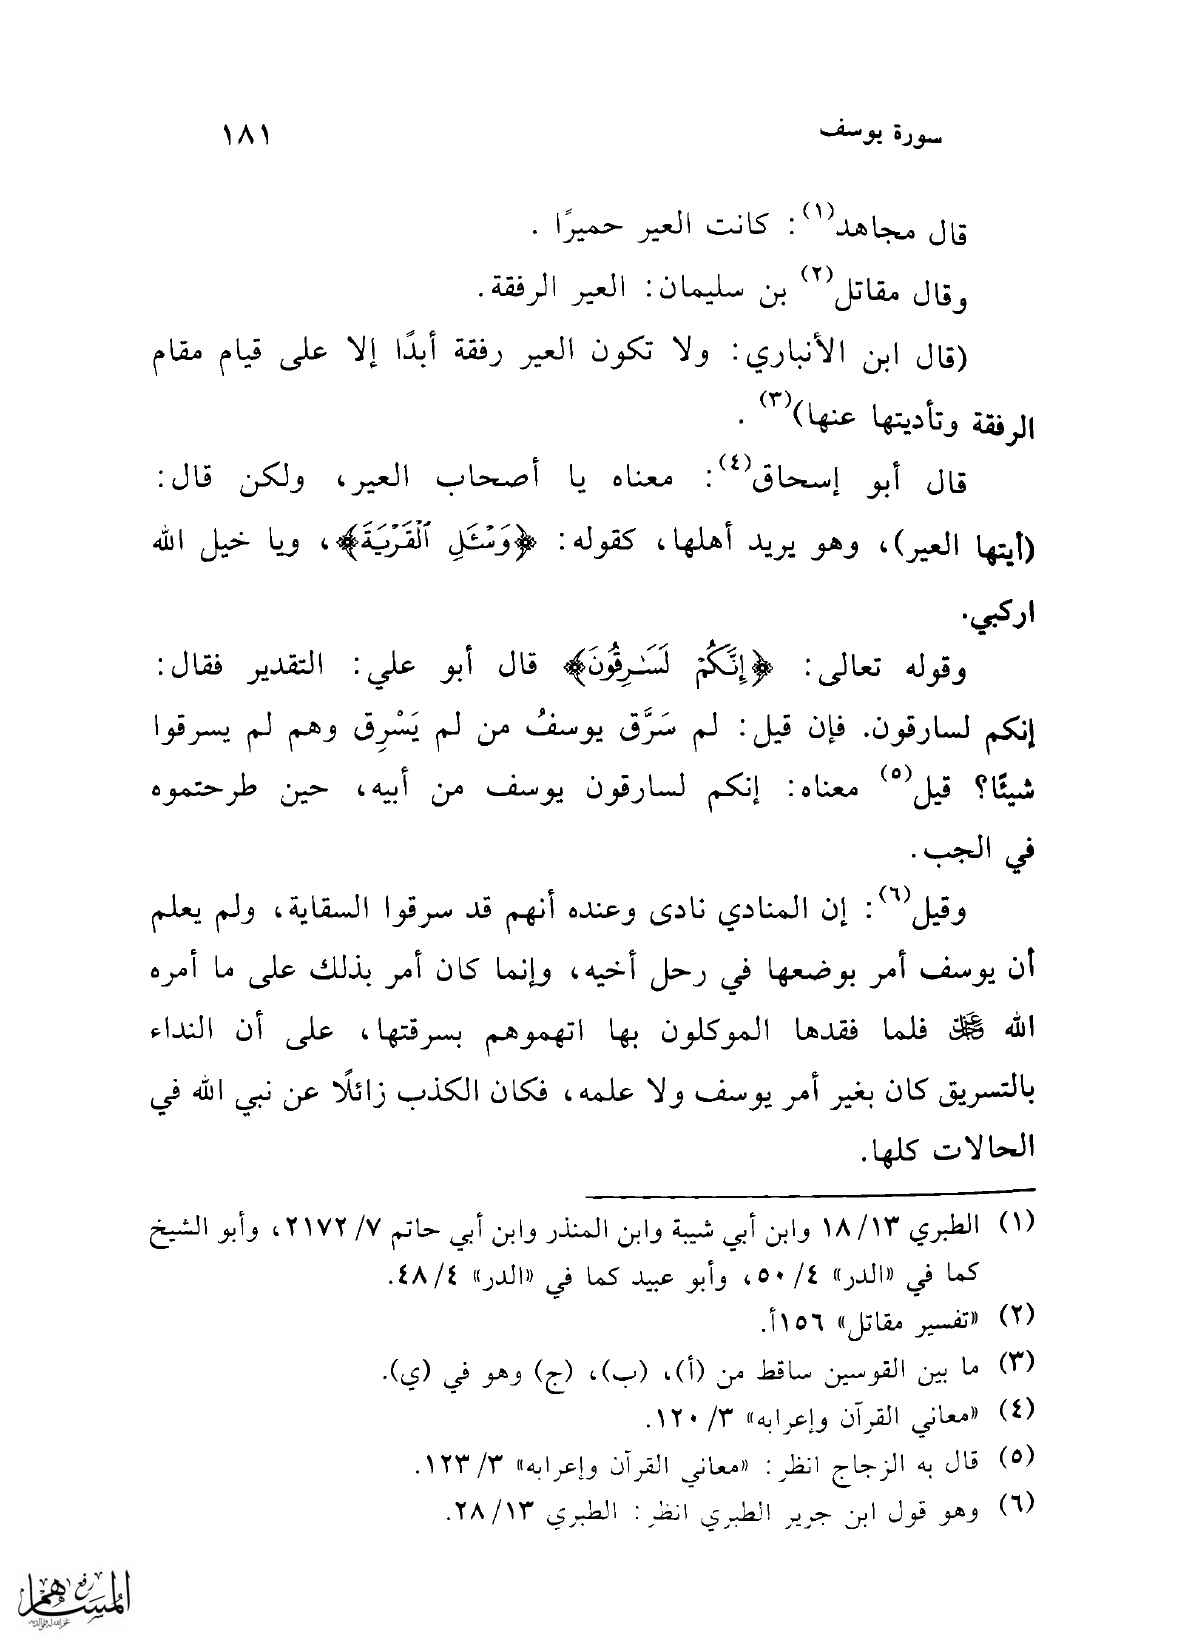 سورة يوسف ١٨١
قال مجاهد(١): كانت العير حميرًا .
وقال مقاتل(٢) بن سليمان: العير الرفقة.
(قال ابن الأنباري: ولا تكون العير رفقة أبدًا إلا على قيام مقام
الرفقة وتأديتها عنها)(٣) .
قال أبو إسحاق(٤): معناه يا أصحاب العير، ولكن قال:
(أيتها العير)، وهو يريد أهلها، كقوله: ﴿وَسْـَٔلِ ٱلْقَرْيَةَ﴾، ويا خيل الله
اركبي.
وقوله تعالى: ﴿إِنَّكُمْ لَسَـٰرِقُونَ﴾ قال أبو علي: التقدير فقال:
إنكم لسارقون. فإن قيل: لم سَرَّق يوسفُ من لم يَسْرِق وهم لم يسرقوا
شيئًا؟ قيل(٥) معناه: إنكم لسارقون يوسف من أبيه، حين طرحتموه
في الجب.
وقيل(٦): إن المنادي نادى وعنده أنهم قد سرقوا السقاية، ولم يعلم
أن يوسف أمر بوضعها في رحل أخيه، وإنما كان أمر بذلك على ما أمره
الله ﷿ فلما فقدها الموكلون بها اتهموهم بسرقتها، على أن النداء
بالتسريق كان بغير أمر يوسف ولا علمه، فكان الكذب زائلًا عن نبي الله في
الحالات كلها.
(١) الطبري ١٣/ ١٨ وابن أبي شيبة وابن المنذر وابن أبي حاتم ٧/ ٢١٧٢، وأبو الشيخ
كما في «الدر» ٤/ ٥٠، وأبو عبيد كما في «الدر» ٤/ ٤٨.
(٢) «تفسير مقاتل» ١٥٦أ.
(٣) ما بين القوسين ساقط من (أ)، (ب)، (ج) وهو في (ي).
(٤) «معاني القرآن وإعرابه» ٣/ ١٢٠.
(٥) قال به الزجاج انظر: «معاني القرآن وإعرابه» ٣/ ١٢٣.
(٦) وهو قول ابن جرير الطبري انظر: الطبري ١٣/ ٢٨.
رفع
المساهم